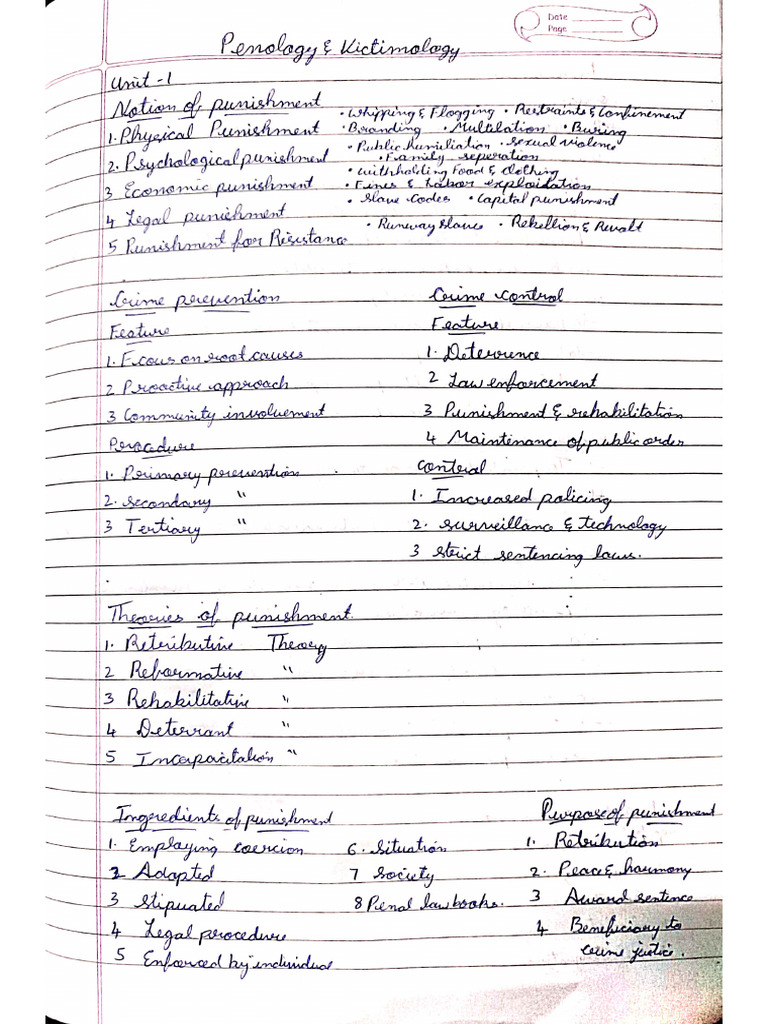 Date
Page
Penology & Victimology
Unit-1
Notion of punishment
1. Physical Punishment
• Whipping & Flogging • Restraints & Confinement
• Branding • Multilation • Buring
2. Psychological punishment
• Public humiliation • Sexual violence
• Family seperation
3 Economic punishment
• Withholding Food & Clothing
• Fines & Labor exploidation
4 Legal punishment
• Slave Codes • Capital punishment
5 Punishment for Resistance
• Runway Slaves • Rebellion & Revolt
Crime prevention
Feature
1. Focus on root causes
2 Proactive approach
3 Community involvement
Procedure
1. Primary prevention
2. Secondary "
3 Tertiary "
Crime control
Feature
1. Deterrence
2 Law enforcement
3 Punishment & rehabilitation
4 Maintenance of public order
Control
1. Increased policing
2. Surveillance & technology
3 Strict sentencing laws.
Theories of punishment
1. Retributive Theory
2 Reformative "
3 Rehabilitative "
4 Deterrant "
5 Incapacitation "
Ingredients of punishment
1. Employing coercion
2 Adapted
3 Stipuated
4 Legal procedure
5 Enforced by individual
6. Situation
7 Society
8 Penal law books.
Purpose of punishment
1. Retribution
2. Peace & harmony
3 Award sentence
4 Beneficiary to
crime justice.